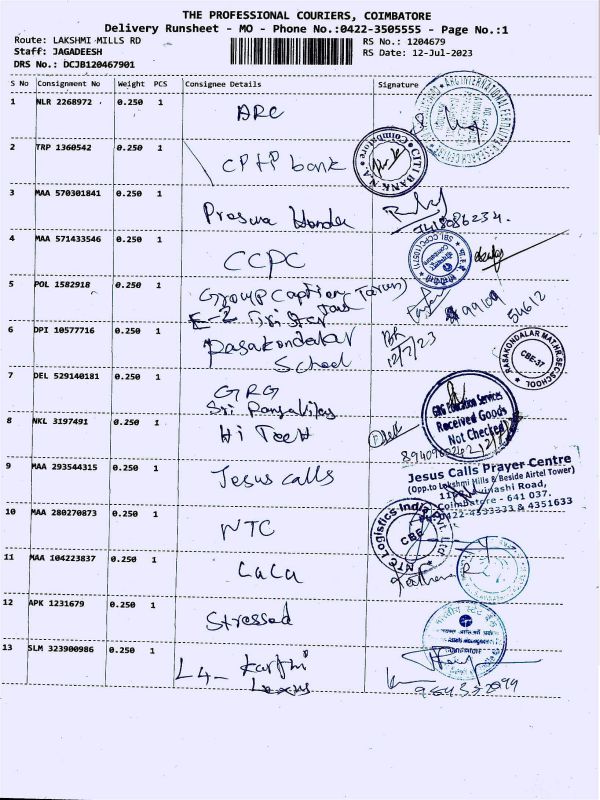 THE PROFESSIONAL COURIERS, COIMBATORE
Delivery Runsheet - MO - Phone No.:0422-3505555 - Page No.:1
Route: LAKSHMI MILLS RD RS No.: 1204679
Staff: JAGADEESH RS Date: 12-Jul-2023
DRS No.: DCJB120467901
S No Consignment No Weight PCS Consignee Details Signature
1 NLR 2268972 0.250 1 ARC
2 TRP 1360542 0.250 1 bank
CITI BANK-N.A Coimbatore
3 MAA 570301841 0.250 1
4 MAA 571433546 0.250 1 CCPC
5 POL 1582918 0.250 1 Group Caption Tarun 99109 54612
E-2
6 DPI 10577716 0.250 1 Rasakondalar 12/7/23
School
RASAKONDALAR MAT.HR.SEC.SCHOOL CBE-37
7 DEL 529140181 0.250 1 GRG
Sri
GRG Education Services
Received Goods
Not Checked
8 NKL 3197491 0.250 1 Hi Tech
9 MAA 293544315 0.250 1 Jesus calls
Jesus Calls Prayer Centre
(Opp.to Lakshmi Mills & Beside Airtel Tower)
Avinashi Road,
Coimbatore - 641 037.
0422-4393333 & 4351633
10 MAA 280270873 0.250 1 NTC
NTC Logistics India Pvt. Ltd CBE
11 MAA 104223837 0.250 1 LaLa
12 APK 1231679 0.250 1 Stressed
13 SLM 323900986 0.250 1 L4- Karthi
Lexus